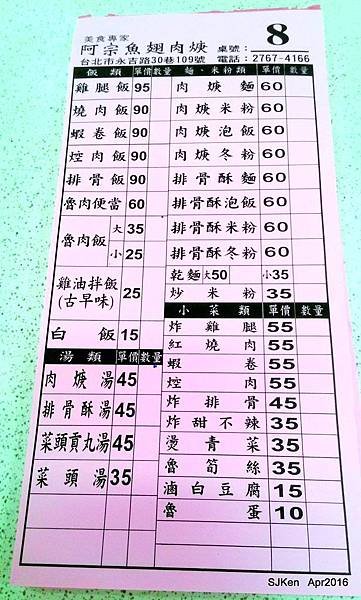 美食專家
阿宗魚翅肉焿 桌號: 8
台北市永吉路30巷109號 電話: 2767-4166
飯類 單價 數量
雞腿飯 95
燒肉飯 90
蝦卷飯 90
焢肉飯 90
排骨飯 90
魯肉便當 60
魯肉飯 大35
小25
雞油拌飯 25
(古早味)
白飯 15
湯類 單價 數量
肉焿湯 45
排骨酥湯 45
菜頭貢丸湯 45
菜頭湯 35
麵、米粉類 單價 數量
肉焿麵 60
肉焿米粉 60
肉焿泡飯 60
肉焿冬粉 60
排骨酥麵 60
排骨酥泡飯 60
排骨酥米粉 60
排骨酥冬粉 60
乾麵 大50 小35
炒米粉 35
小菜類 單價 數量
炸雞腿 55
紅燒肉 55
蝦卷 55
焢肉 55
炸排骨 45
炸甜不辣 35
燙青菜 35
魯筍絲 35
滷白豆腐 15
魯蛋 10
SJKen Apr2016